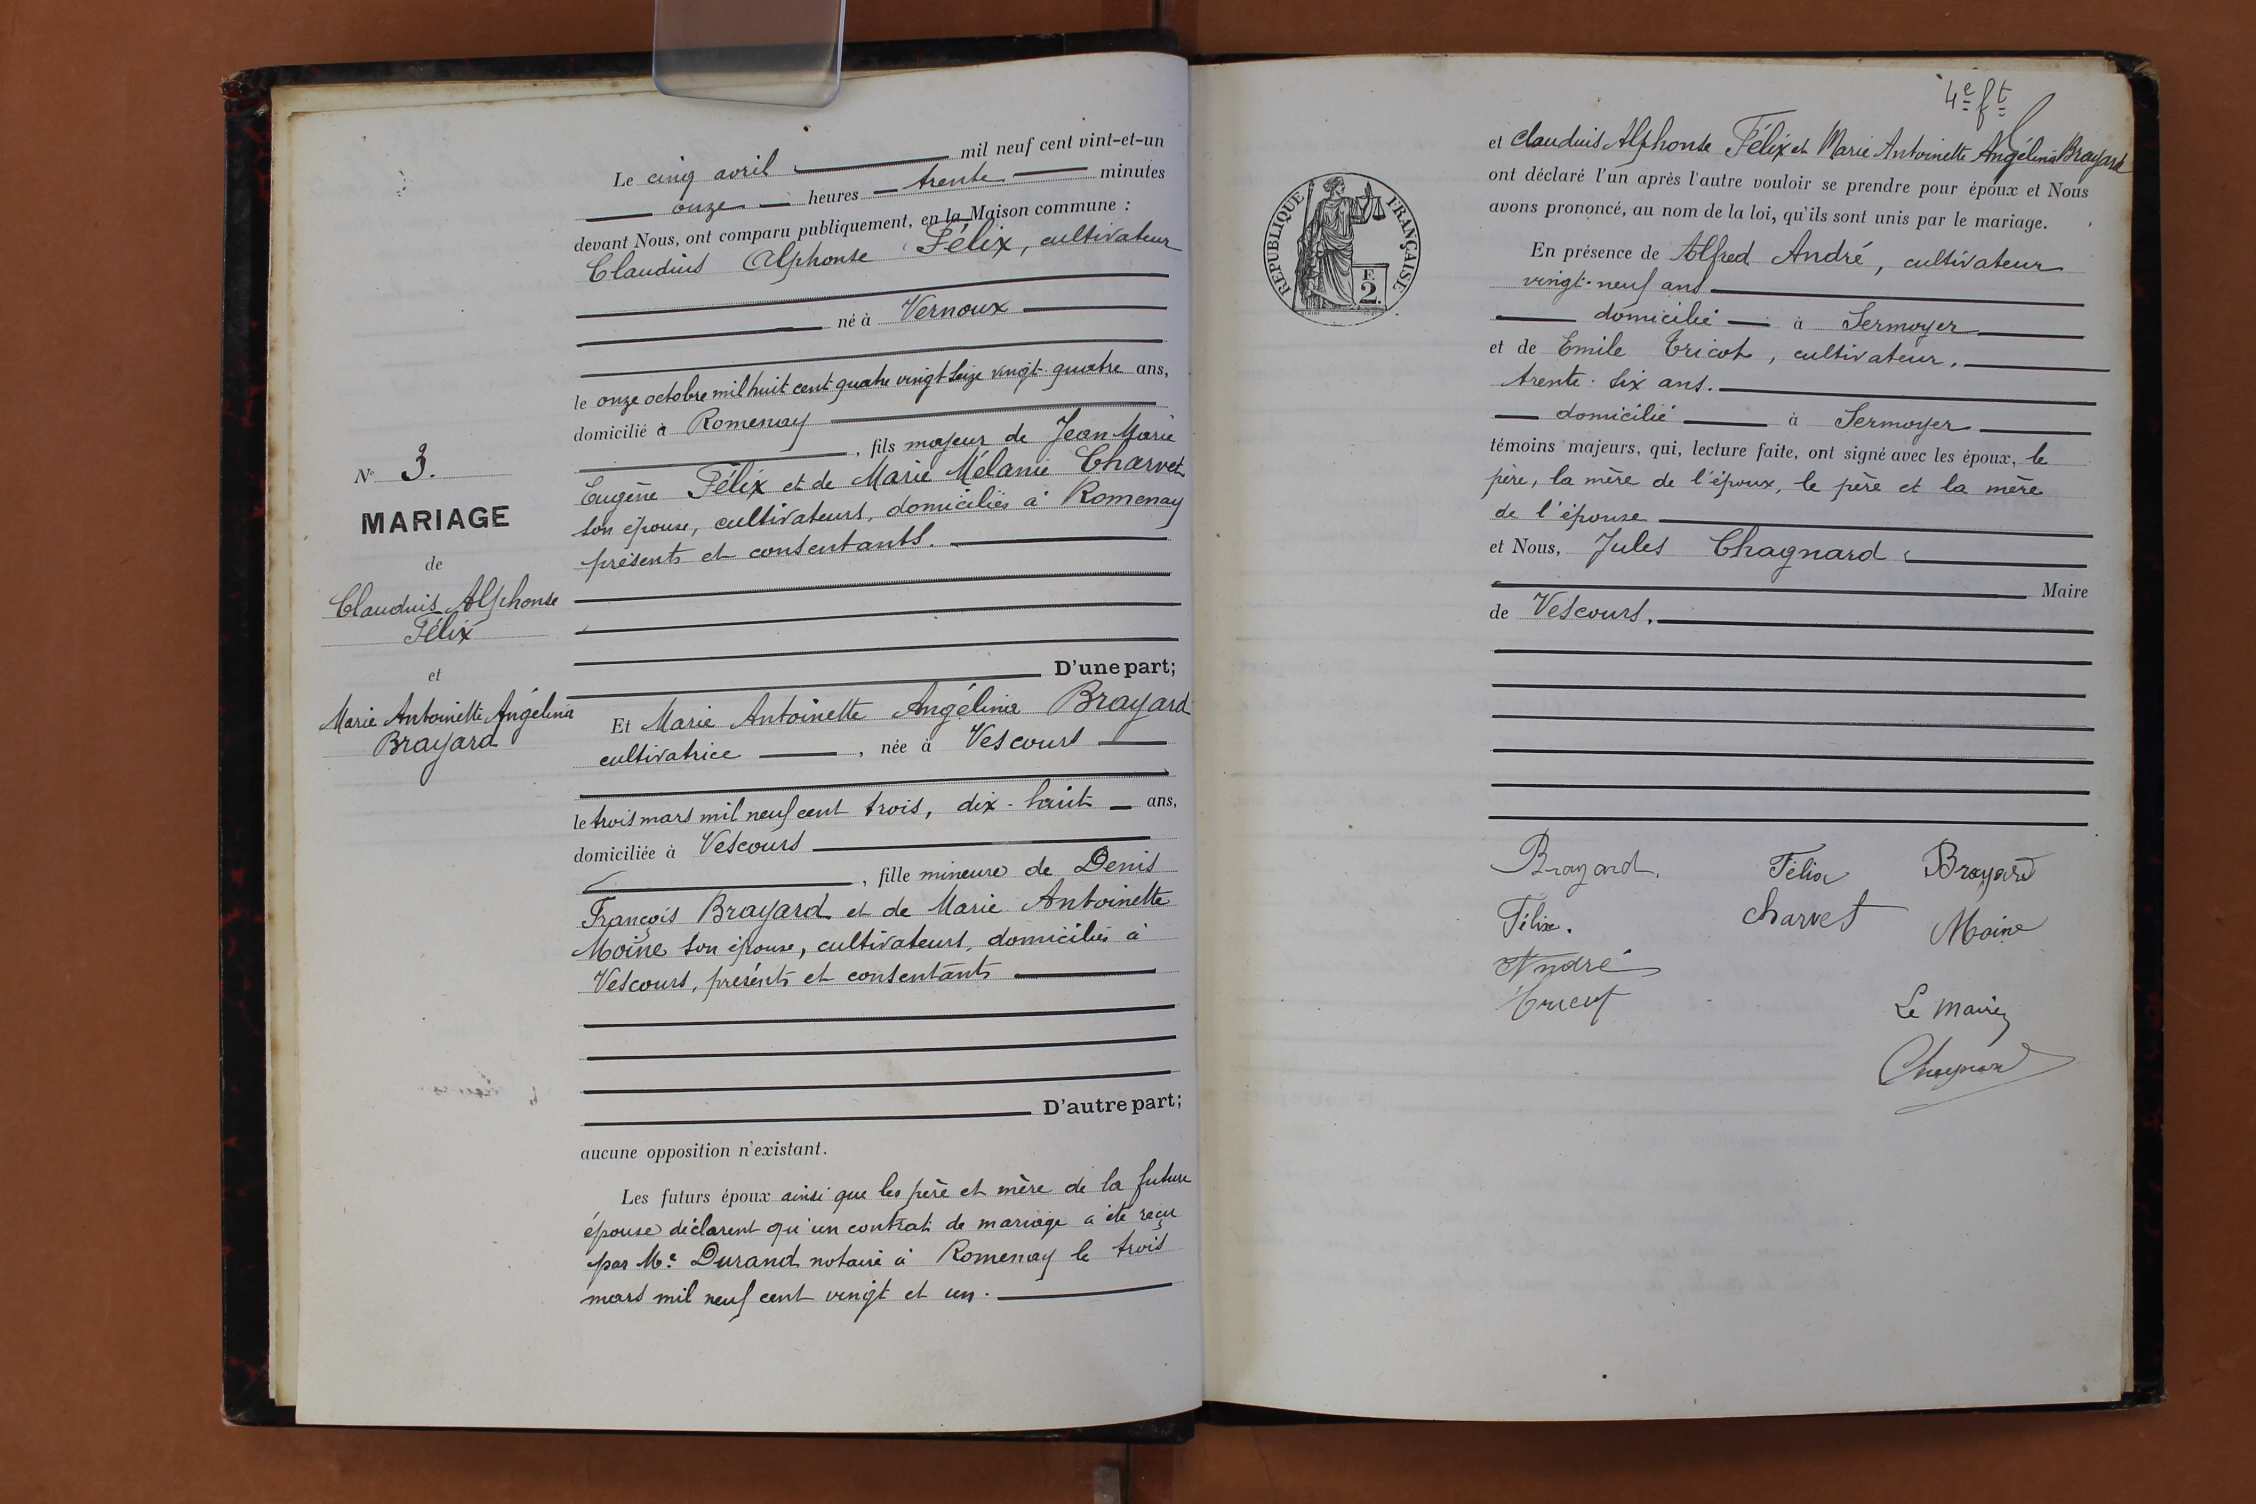 Le cinq avril mil neuf cent vint-et-un
onze heures trente minutes
devant Nous, ont comparu publiquement, en la Maison commune :
Claudius Alphonse Félix, cultivateur
né à Vernoux
le onze octobre mil huit cent quatre vingt seize vingt-quatre ans,
domicilié à Romenay
, fils majeur de Jean Marie
Eugène Félix et de Marie Mélanie Charvet
son épouse, cultivateurs, domiciliés à Romenay
présents et consentants.
No 3.
MARIAGE
de
Claudius Alphonse
Félix
et
Marie Antoinette Angélina
Brayard
D'une part;
Et Marie Antoinette Angélina Brayard
cultivatrice , née à Vescours
le trois mars mil neuf cent trois, dix-huit ans,
domiciliée à Vescours
, fille mineure de Denis
François Brayard et de Marie Antoinette
Moine son épouse, cultivateurs, domiciliés à
Vescours, présents et consentants
D'autre part;
aucune opposition n'existant.
Les futurs époux ainsi que les père et mère de la future
épouse déclarent qu'un contrat de mariage a été reçu
par Me Durand notaire à Romenay le trois
mars mil neuf cent vingt et un.
4e ft
RÉPUBLIQUE FRANÇAISE
F.
2.
et Claudius Alphonse Félix et Marie Antoinette Angélina Brayard
ont déclaré l'un après l'autre vouloir se prendre pour époux et Nous
avons prononcé, au nom de la loi, qu'ils sont unis par le mariage.
En présence de Alfred André, cultivateur
vingt-neuf ans
domicilié à Sermoyer
et de Emile Tricot, cultivateur,
trente-six ans.
domicilié à Sermoyer
témoins majeurs, qui, lecture faite, ont signé avec les époux, le
père, la mère de l'époux, le père et la mère
de l'épouse
et Nous, Jules Chagnard
Maire
de Vescours.
Brayard. Félix Brayard
Félix. Charvet Moine
André
Tricot
Le Maire
Chagnard